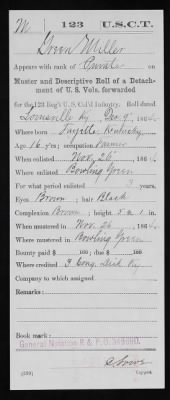 M | 123 | U.S.C.T.
Green Miller
Appears with rank of Private on
Muster and Descriptive Roll of a Detach-
ment of U. S. Vols. forwarded
for the 123 Reg't U.S. Col'd Infantry. Roll dated
Louisville Ky Dec. 9, 1864.
Where born Fayette Kentucky
Age 16 y'rs; occupation Farmer
When enlisted Nov. 26, 1864.
Where enlisted Bowling Green
For what period enlisted 3 years.
Eyes Brown; hair Black
Complexion Brown; height 5 ft. 1 in.
When mustered in Nov. 26, 1864.
Where mustered in Bowling Green
Bounty paid $ 100; due $ 100
Where credited 3 Cong. Dist. Ky
Company to which assigned
Remarks:
Book mark:
General Notation R. & P. O.
(339) Copyist.